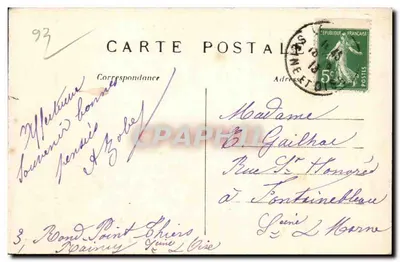 93
CARTE POSTALE
Correspondance
RÉPUBLIQUE FRANÇAISE
5
POSTES
SEINE ET OISE
Affectueux
souvenir bonnes
pensées
A Zobel
Madame
E. Gailhac
Rue St Honoré
à Fontainebleau
Seine
Marne
3, Rond Point Thiers
Raincy Seine Oise